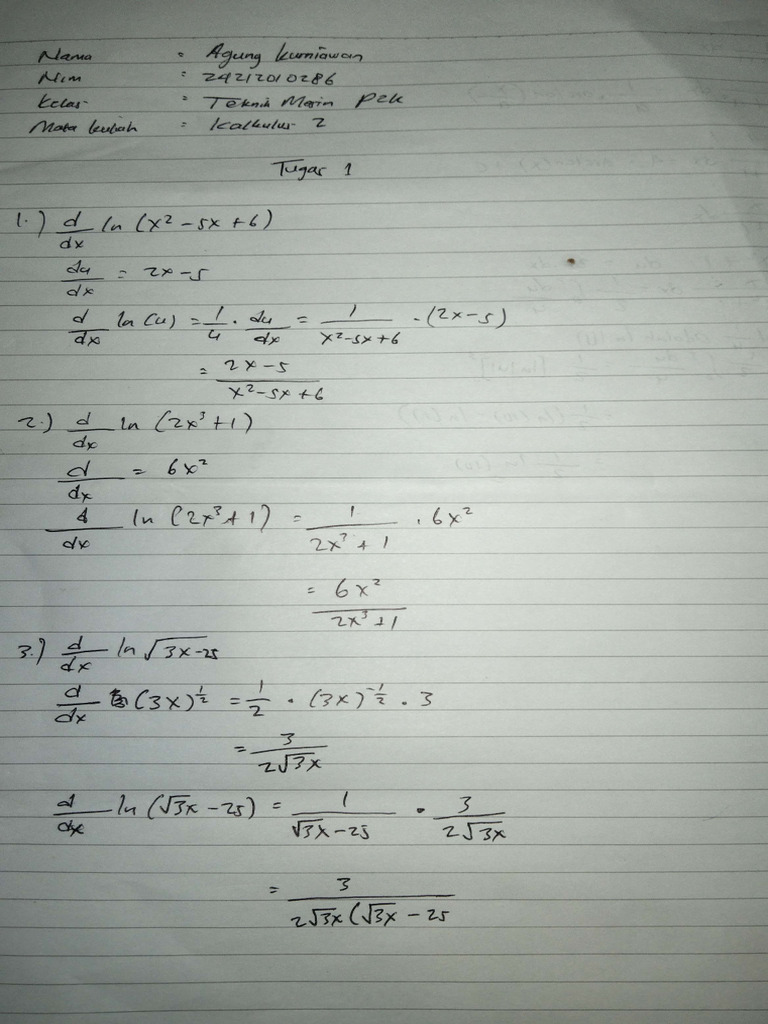 Nama : Agung Kurniawan
Nim : 24212010286
Kelas : Teknik Mesin P2K
Mata kuliah : Kalkulus 2
Tugas 1
1.) d/dx ln (x² - 5x + 6)
du/dx = 2x - 5
d/dx ln (u) = 1/u · du/dx = 1/(x² - 5x + 6) · (2x - 5)
= (2x - 5)/(x² - 5x + 6)
2.) d/dx ln (2x³ + 1)
d/dx = 6x²
d/dx ln (2x³ + 1) = 1/(2x³ + 1) · 6x²
= 6x²/(2x³ + 1)
3.) d/dx ln √(3x - 25)
d/dx (3x)^(1/2) = 1/2 · (3x)^(-1/2) · 3
= 3/(2√3x)
d/dx ln (√3x - 25) = 1/(√3x - 25) · 3/(2√3x)
= 3/(2√3x (√3x - 25